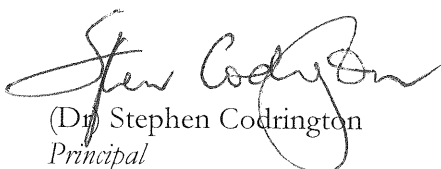 Stephen Codrington
(Dr) Stephen Codrington
Principal